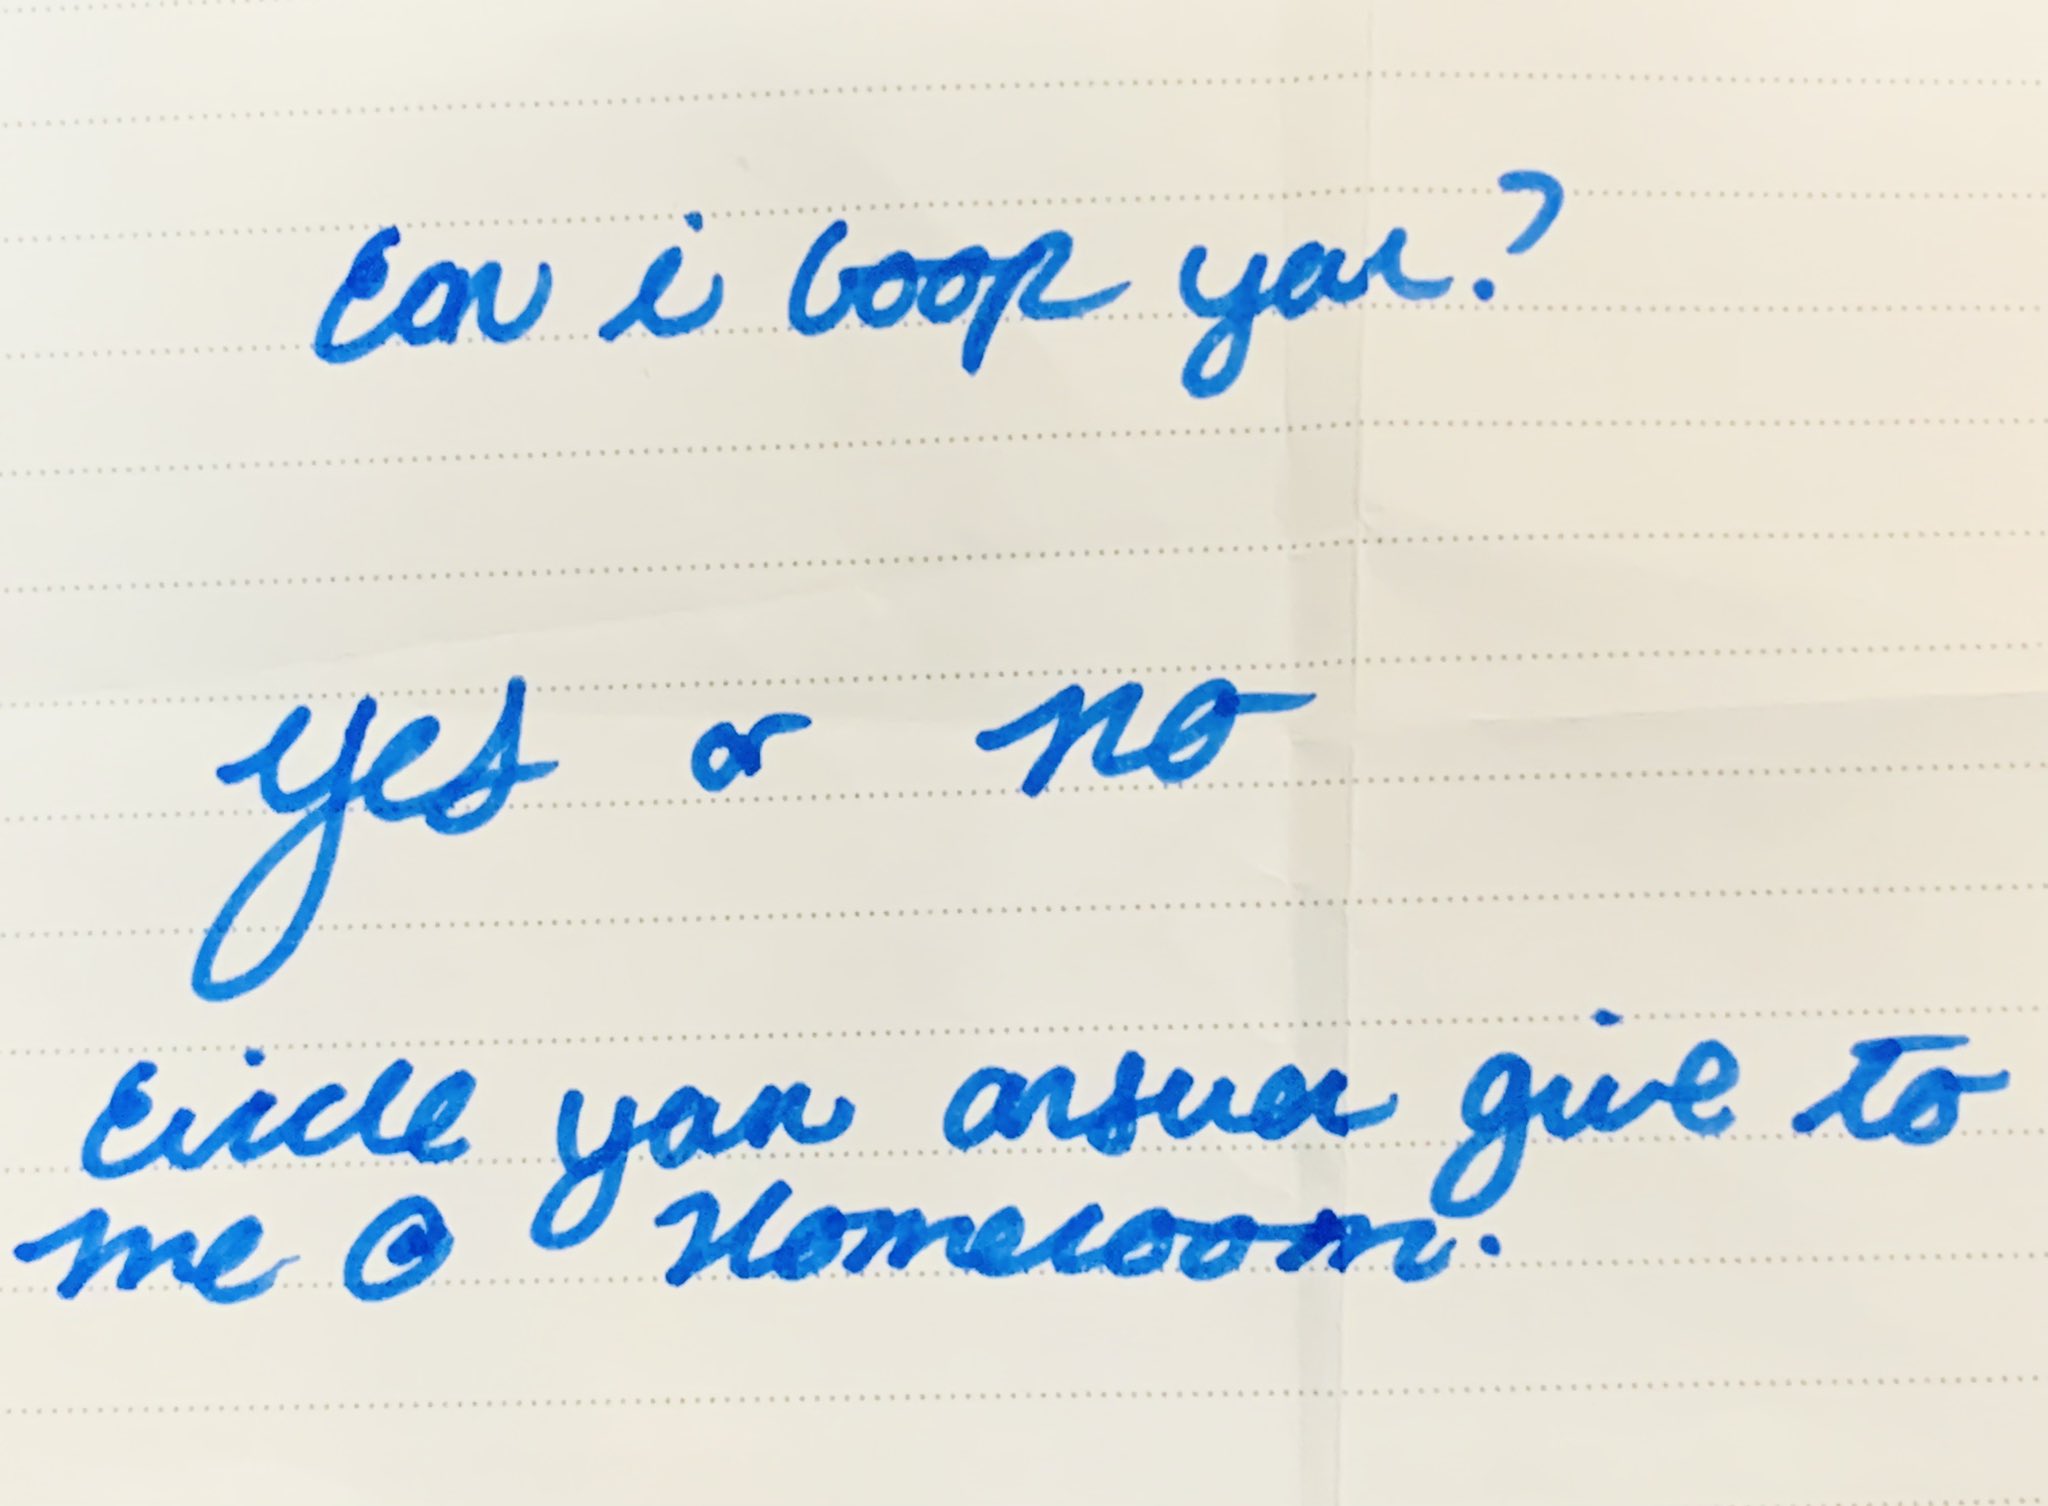 Can i boop you?
yes or no
Circle your answer give to
me @ Homeroom.